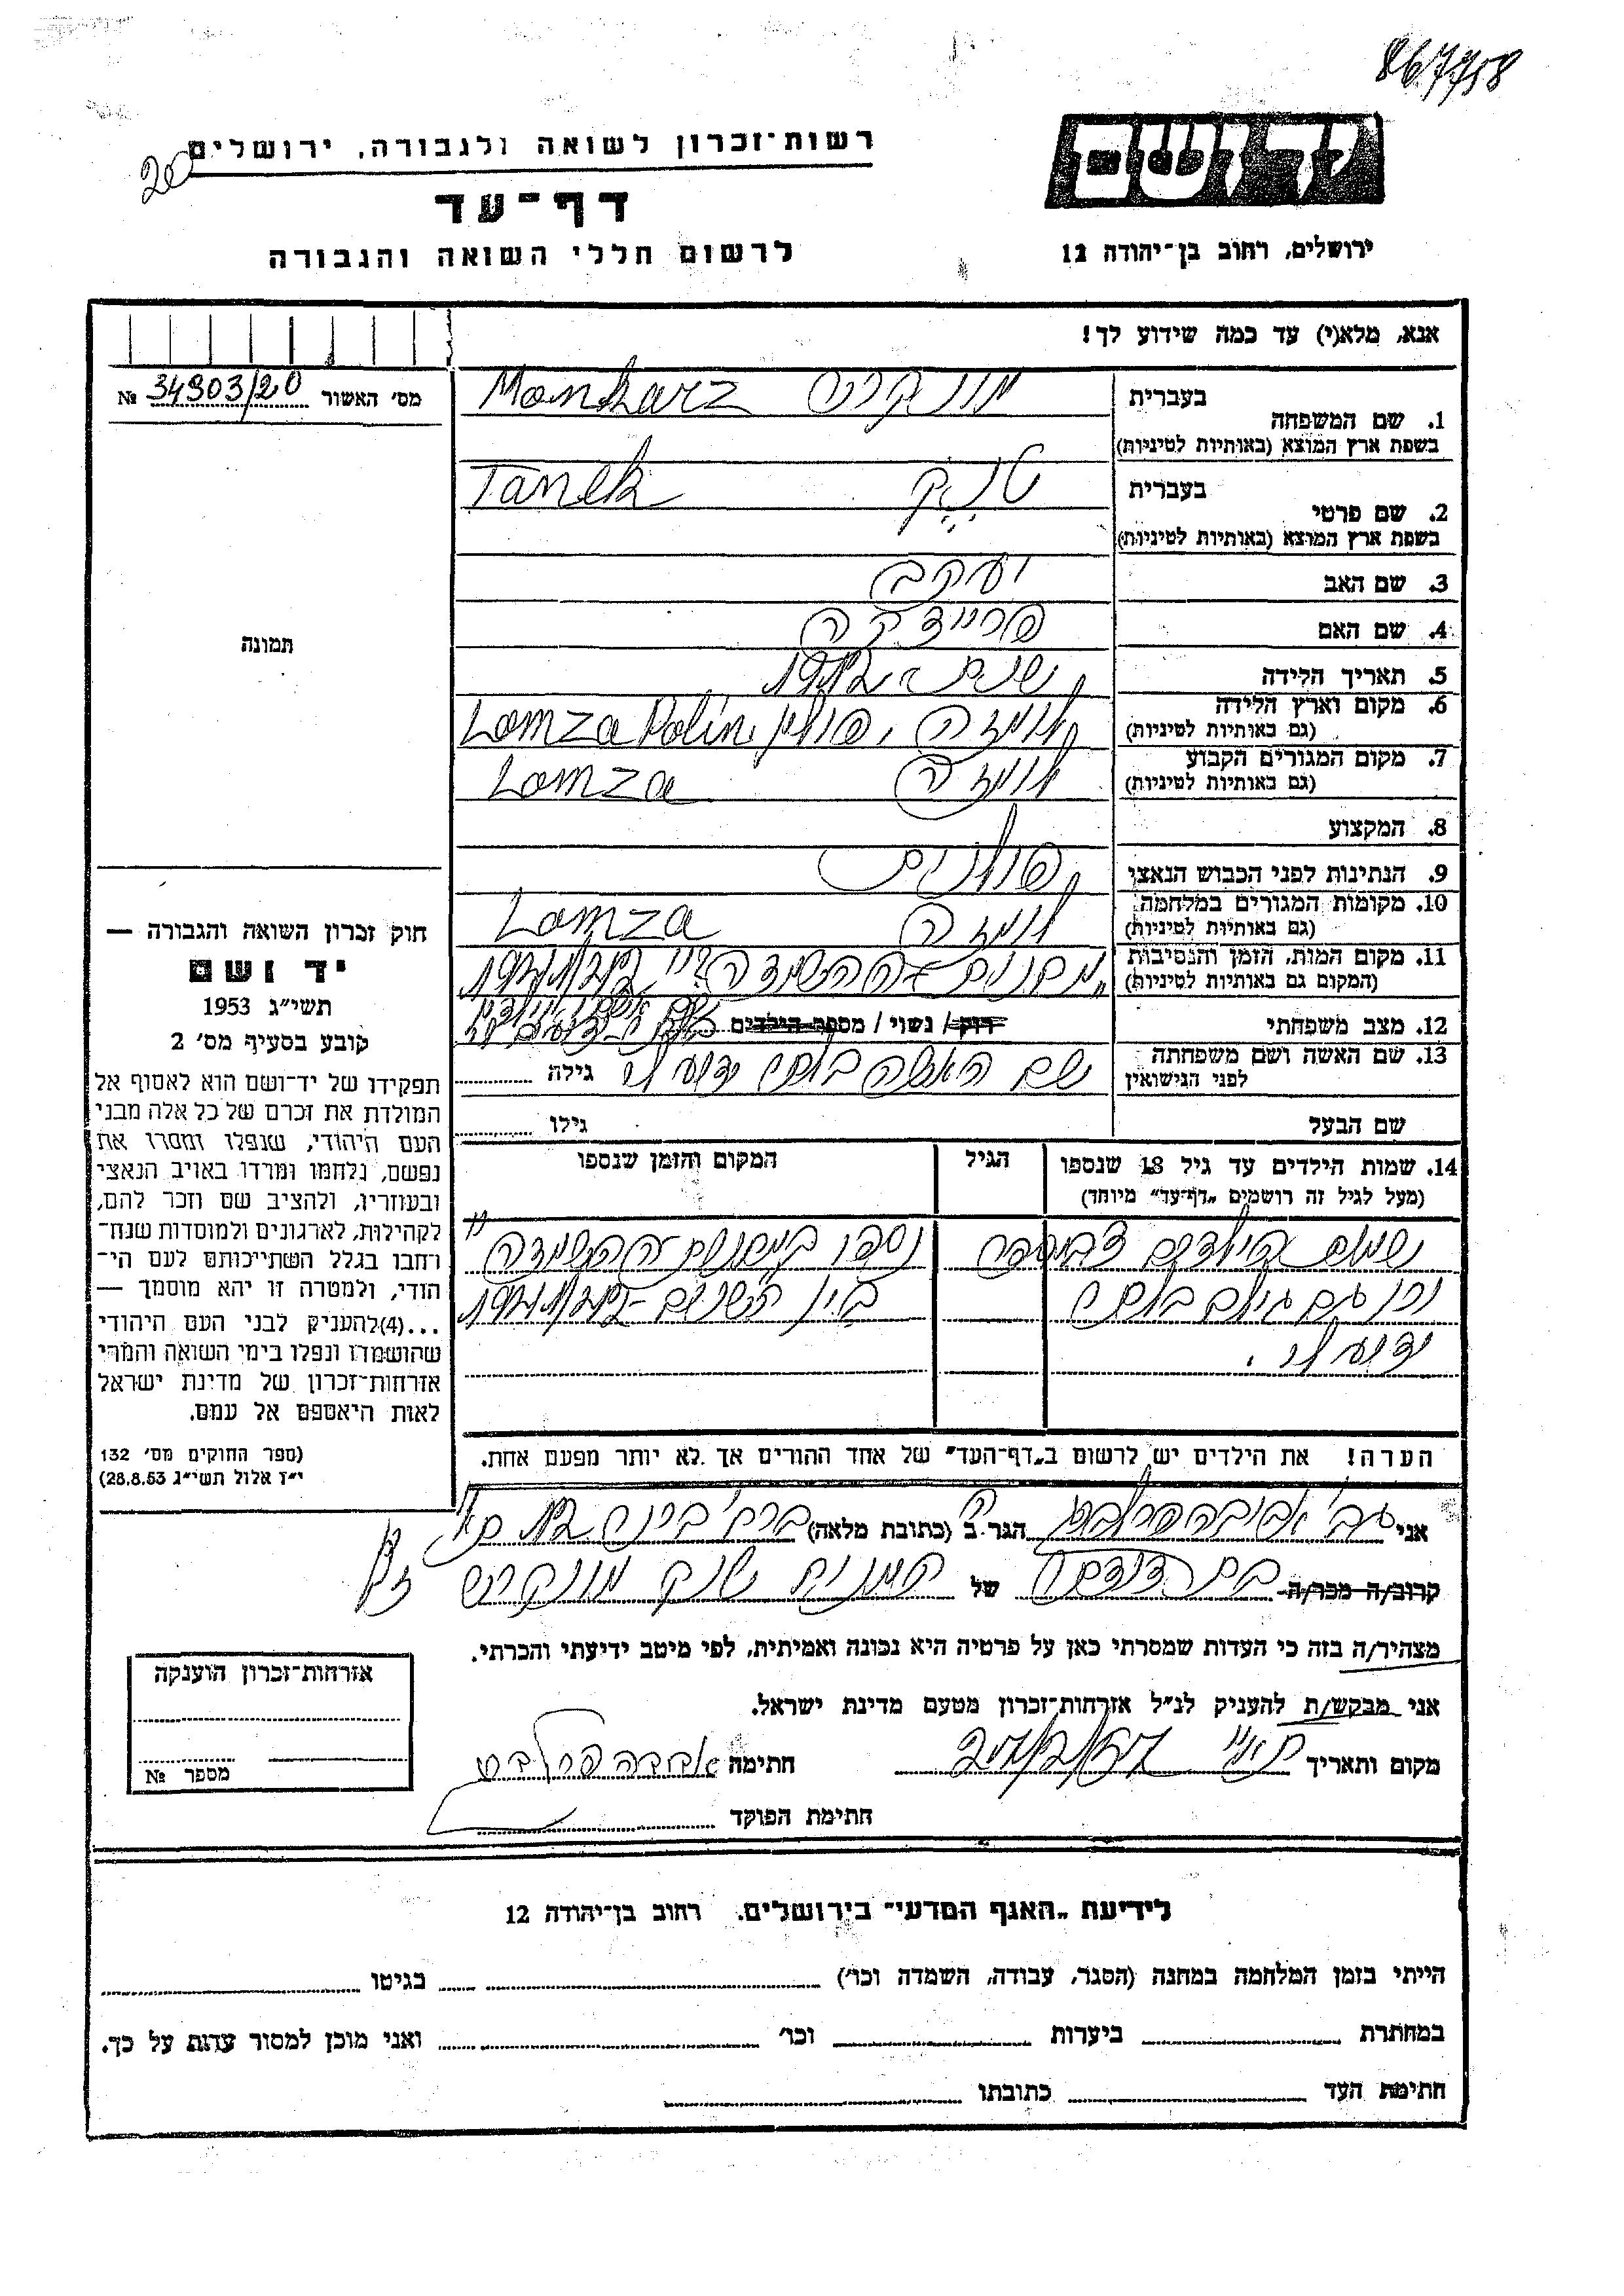 867758
יד ושם
רשות־זכרון לשואה ולגבורה, ירושלים
20
דף־עד
ירושלים, רחוב בן־יהודה 12
לרשום חללי השואה והגבורה
אנא, מלא(י) עד כמה שידוע לך!
מס׳ האשור 34903/20 №
בעברית
1. שם המשפחה
בשפת ארץ המוצא (באותיות לטיניות)
Monkarz
בעברית
2. שם פרטי
בשפת ארץ המוצא (באותיות לטיניות)
Tanek
3. שם האב יעקב
4. שם האם פריידקה
5. תאריך הלידה
6. מקום וארץ הלידה לומזה, פולין Lomza Polin
(גם באותיות לטיניות)
7. מקום המגורים הקבוע לומזה Lomza
(גם באותיות לטיניות)
8. המקצוע
9. הנתינות לפני הכבוש הנאצי פולנית
10. מקומות המגורים במלחמה לומזה Lomza
(גם באותיות לטיניות)
11. מקום המות, הזמן והנסיבות
(המקום גם באותיות לטיניות)
12. מצב משפחתי רוק/ נשוי / מספר הילדים
13. שם האשה ושם משפחתה שם האשה בלתי ידוע לי גילה
לפני הנישואין
שם הבעל גילו
14. שמות הילדים עד גיל 18 שנספו הגיל המקום והזמן שנספו
(מעל לגיל זה רושמים „דף־עד״ מיוחד)
שמות הילדים נספו במחנות ההשמדה
וכן גם גילם בלתי בין השנים
ידוע לי.
תמונה
חוק זכרון השואה והגבורה —
יד ושם
תשי״ג 1953
קובע בסעיף מס׳ 2
תפקידו של יד־ושם הוא לאסוף אל
המולדת את זכרם של כל אלה מבני
העם היהודי, שנפלו ומסרו את
נפשם, נלחמו ומרדו באויב הנאצי
ובעוזריו, ולהציב שם וזכר להם,
לקהילות, לארגונים ולמוסדות שנח־
רחבו בגלל השתייכותם לעם הי־
הודי, ולמטרה זו יהא מוסמך —
...(4)להעניק לבני העם היהודי
שהושמדו ונפלו בימי השואה והמרי
אזרחות־זכרון של מדינת ישראל
לאות היאספם אל עמם.
(ספר החוקים מס׳ 132
י״ז אלול תשי״ג 28.8.53)
הערה! את הילדים יש לרשום ב„דף־העד״ של אחד ההורים אך לא יותר מפעם אחת.
אני הגר ב (כתובת מלאה)
קרוב/ה מכר/ה של
מצהיר/ה בזה כי העדות שמסרתי כאן על פרטיה היא נכונה ואמיתית, לפי מיטב ידיעתי והכרתי.
אני מבקש/ת להעניק לנ״ל אזרחות־זכרון מטעם מדינת ישראל.
מקום ותאריך חתימה
חתימת הפוקד
אזרחות־זכרון הוענקה
מספר №
לידיעת „האגף המדעי״ בירושלים. רחוב בן־יהודה 12
הייתי בזמן המלחמה במחנה (הסגר, עבודה, השמדה וכו׳) בגיטו
במחתרת ביערות וכו׳ ואני מוכן למסור עדות על כך.
חתימת העד כתובתו